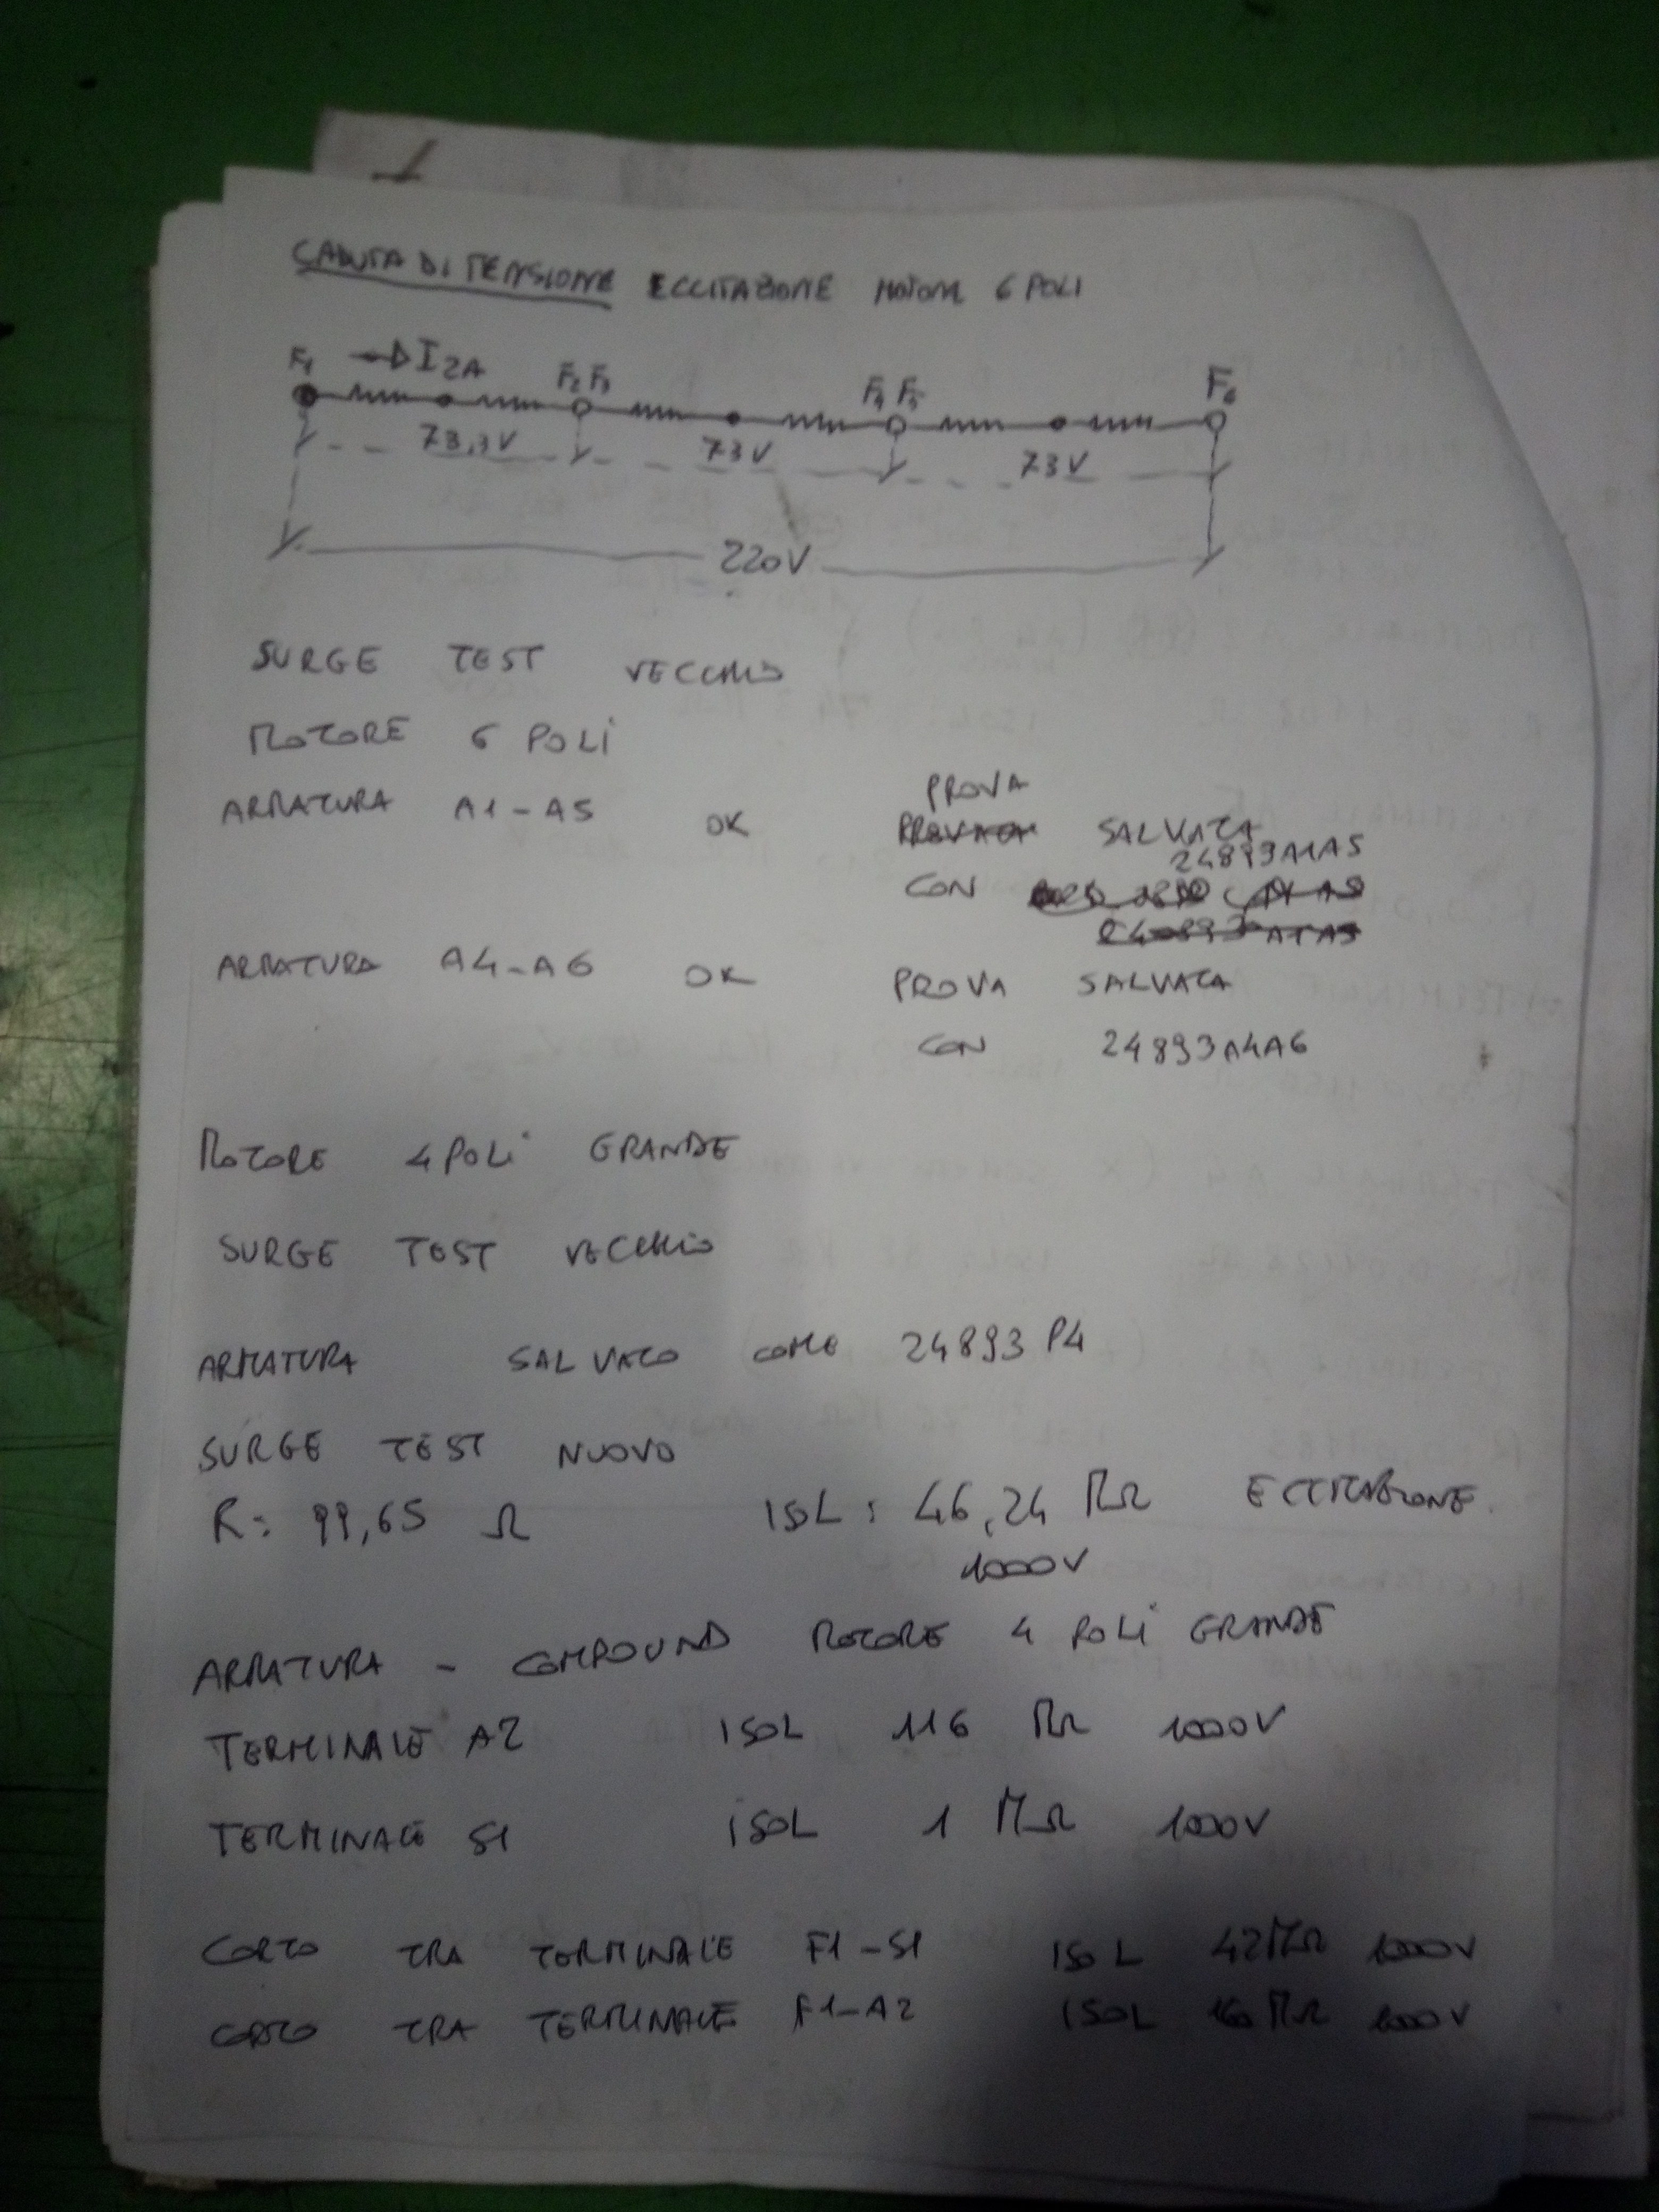 CADUTA DI TENSIONE ECCITAZIONE MOTORE 6 POLI
F1 I 2A F2 F3 F4 F5 F6
73,3V 73V 73V
220V
SURGE TEST VECCHIO
MOTORE 6 POLI
PROVA
ARMATURA A1-A5 OK SALVATA
24893A1A5
CON
ARMATURA A4-A6 OK PROVA SALVATA
CON 24893A4A6
MOTORE 4 POLI GRANDE
SURGE TEST VECCHIO
ARMATURA SALVATO COME 24893 P4
SURGE TEST NUOVO
R: 99,65 Ω ISOL: 46,24 MΩ ECCITAZIONE
1000V
ARMATURA - COMPOUND MOTORE 4 POLI GRANDE
TERMINALE A2 ISOL 116 MΩ 1000V
TERMINALE S1 ISOL 1 MΩ 1000V
CORTO TRA TERMINALE F1-S1 ISOL 42MΩ 1000V
CORTO TRA TERMINALE F1-A2 ISOL MΩ 1000V